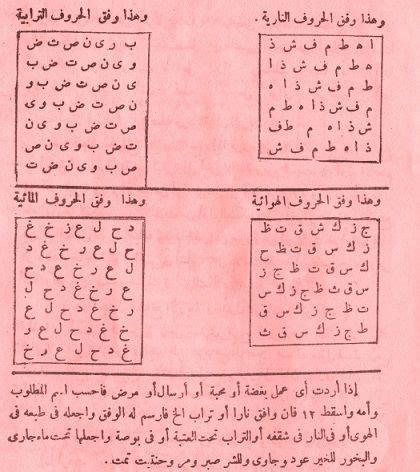 وهذا وفق الحروف النارية .
ا ه ط م ف ش ذ
ه ط م ف ش ذ ا
ط م ف ش ذ ا ه
م ف ش ذ ا ه ط م
ش ذ ا ه م طف
ذ ا ه ط م ف ش
وهذا وفق الحروف الترابية
ب ر ى ن ص ت ض
و ى ن ص ت ض ب
ى ن ص ت ض ب و
ن ص ت ض ب و ى
ص ت ض ب و ى ن
ت ض ب و ى ن ص
ص ب و ى ن ض ت
وهذا وفق الحروف الهوائية
ج ز ك ش ق ت ظ
ز ك س ق ت ظ ح
ك س ق ت ظ ج ز
س ق ث ظ ج ز ك س
ق س ك ز ج ظ ت
ت ظ ج ز ك س ق
ط ج ز ك س ق ث
وهذا وفق الحروف المائية
د ح ل ع ر خ غ
ح ل ع ر خ غ د
ل ع ر خ غ د ح
ع ر خ غ د ح ل
ر خ غ د ح ل ع
خ غ د ح ل ع ر
غ د ح ل ع ر خ
إذا أردت أى عمل بغضة أو محبة أو أرسال أو مرض فاحسب اسم المطلوب
وأمه واسقط ١٢ فان وافق نارا أو تراب الخ فارسم له الوفق واجعله فى طبعه فى
الهوى أو فى النار فى شقفه أو التراب تحت العتبة أو فى بوصة واجعلها تحت ماء جارى
والبخور للخير عود وجاوى وللشر صبر ومر وحنتيت تمت .